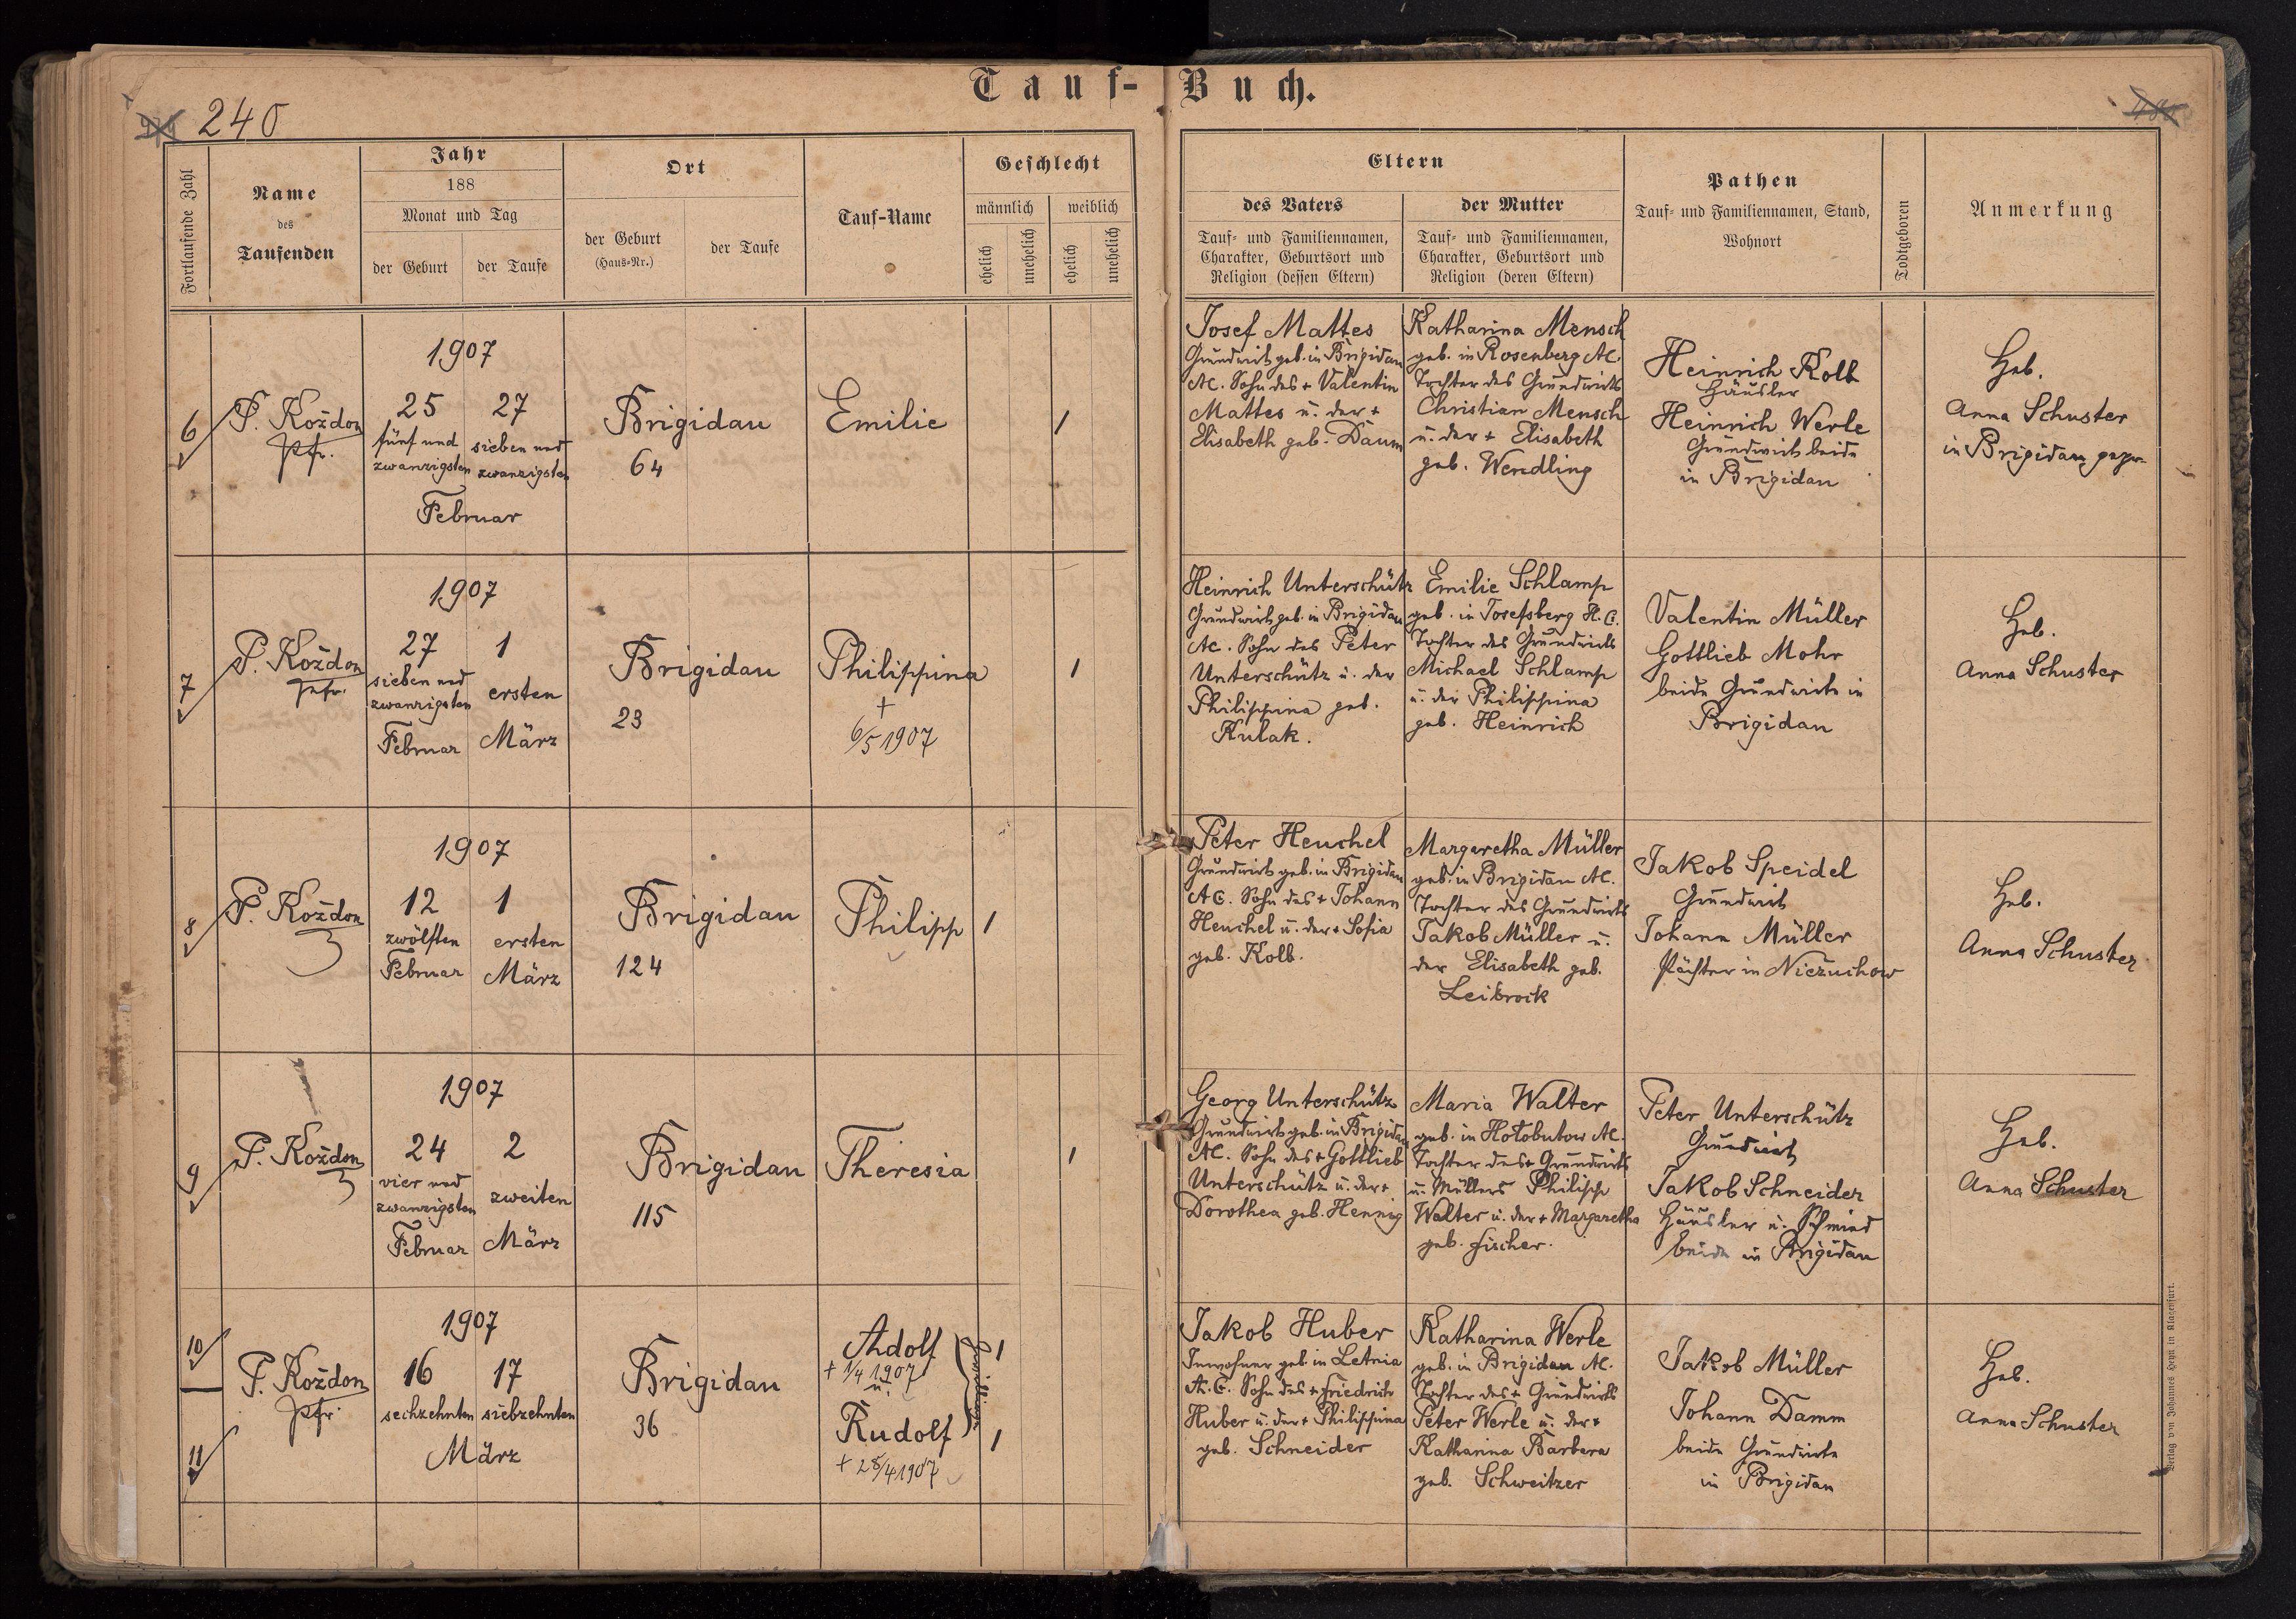 Tauf-Buch.
240
Fortlaufende Zahl
Name
des
Taufenden
Jahr
188
Monat und Tag
der Geburt
der Taufe
Ort
der Geburt
(Haus-Nr.)
der Taufe
Tauf-Name
Geschlecht
männlich
weiblich
ehelich
unehelich
ehelich
unehelich
Eltern
des Vaters
Tauf- und Familiennamen,
Charakter, Geburtsort und
Religion (dessen Eltern)
der Mutter
Tauf- und Familiennamen,
Charakter, Geburtsort und
Religion (deren Eltern)
Pathen
Tauf- und Familiennamen, Stand,
Wohnort
Todtgeboren
Anmerkung
6
P. Koždon
Pfr.
1907
25
fünf und
zwanzigsten
27
sieben und
zwanzigsten
Februar
Brigidau
64
Emilie
1
Josef Mattes
Grundwirt geb. in Brigidau
AC. Sohn des + Valentin
Mattes u. der +
Elisabeth geb. Daum
Katharina Mensch
geb. in Rosenberg AC.
Tochter des Grundwirts
Christian Mensch
u. der + Elisabeth
geb. Wendling
Heinrich Kolb
Häusler
Heinrich Werle
Grundwirt beide
in Brigidau
Heb.
Anna Schuster
in Brigidau gepr.
7
P. Koždon
Pfr.
1907
27
sieben und
zwanzigsten
Februar
1
ersten
März
Brigidau
23
Philippina
+
6/5 1907
1
Heinrich Unterschütz
Grundwirt geb. in Brigidau
AC. Sohn des Peter
Unterschütz u. der
Philippina geb.
Kulak.
Emilie Schlamp
geb. in Josefsberg H.C.
Tochter des Grundwirts
Michael Schlamp
u. der Philippina
geb. Heinrich
Valentin Müller
Gottlieb Mohr
beide Grundwirte in
Brigidau
Heb.
Anna Schuster
8
P. Koždon
1907
12
zwölften
Februar
1
ersten
März
Brigidau
124
Philipp
1
Peter Heuchel
Grundwirt geb. in Brigidau
AC. Sohn des + Johann
Heuchel u. der + Sofia
geb. Kolb.
Margaretha Müller
geb. in Brigidau AC.
Tochter des Grundwirts
Jakob Müller u.
der Elisabeth geb.
Leibrock
Jakob Speidel
Grundwirt
Johann Müller
Pächter in Niezuchow
Heb.
Anna Schuster
9
P. Koždon
1907
24
vier und
zwanzigsten
Februar
2
zweiten
März
Brigidau
115
Theresia
1
Georg Unterschütz
Grundwirt geb. in Brigidau
AC. Sohn des + Gottlieb
Unterschütz u. der +
Dorothea geb. Hennig
Maria Walter
geb. in Hołobutow AC.
Tochter des + Grundwirts
u. Müllers Philipp
Walter u. der + Margaretha
geb. Fischer.
Peter Unterschütz
Grundwirt
Jakob Schneider
Häusler u. Schmied
beide in Brigidau
Heb.
Anna Schuster
10
11
P. Koždon
Pfr.
1907
16
sechzehnten
17
siebzehnten
März
Brigidau
36
Adolf
+ 1/4 1907
u.
Rudolf
+ 28/4 1907
Zwillinge
1
1
Jakob Huber
Inwohner geb. in Letnia
A.C. Sohn des + Friedrich
Huber u. der + Philippina
geb. Schneider
Katharina Werle
geb. in Brigidau AC.
Tochter des + Grundwirts
Peter Werle u. der +
Katharina Barbara
geb. Schweitzer
Jakob Müller
Johann Damm
beide Grundwirte
in Brigidau
Heb.
Anna Schuster
Verlag von Johannes Heyn in Klagenfurt.